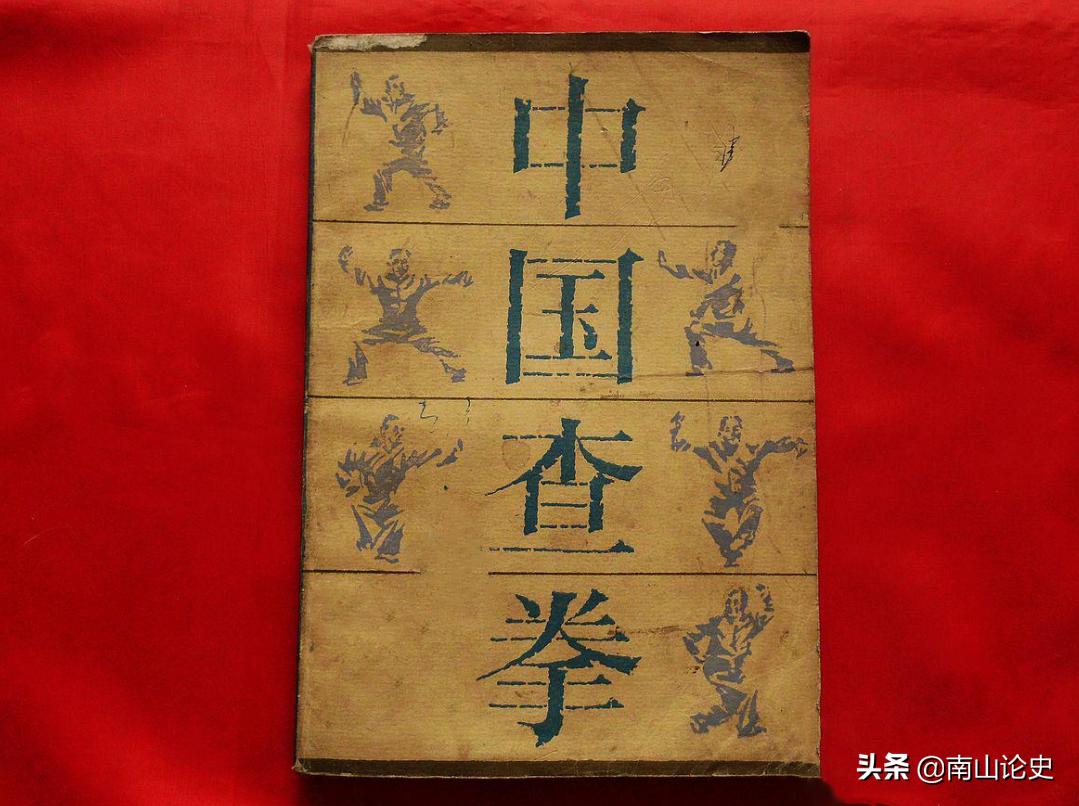 中
国
查
拳
头条 @南山论史